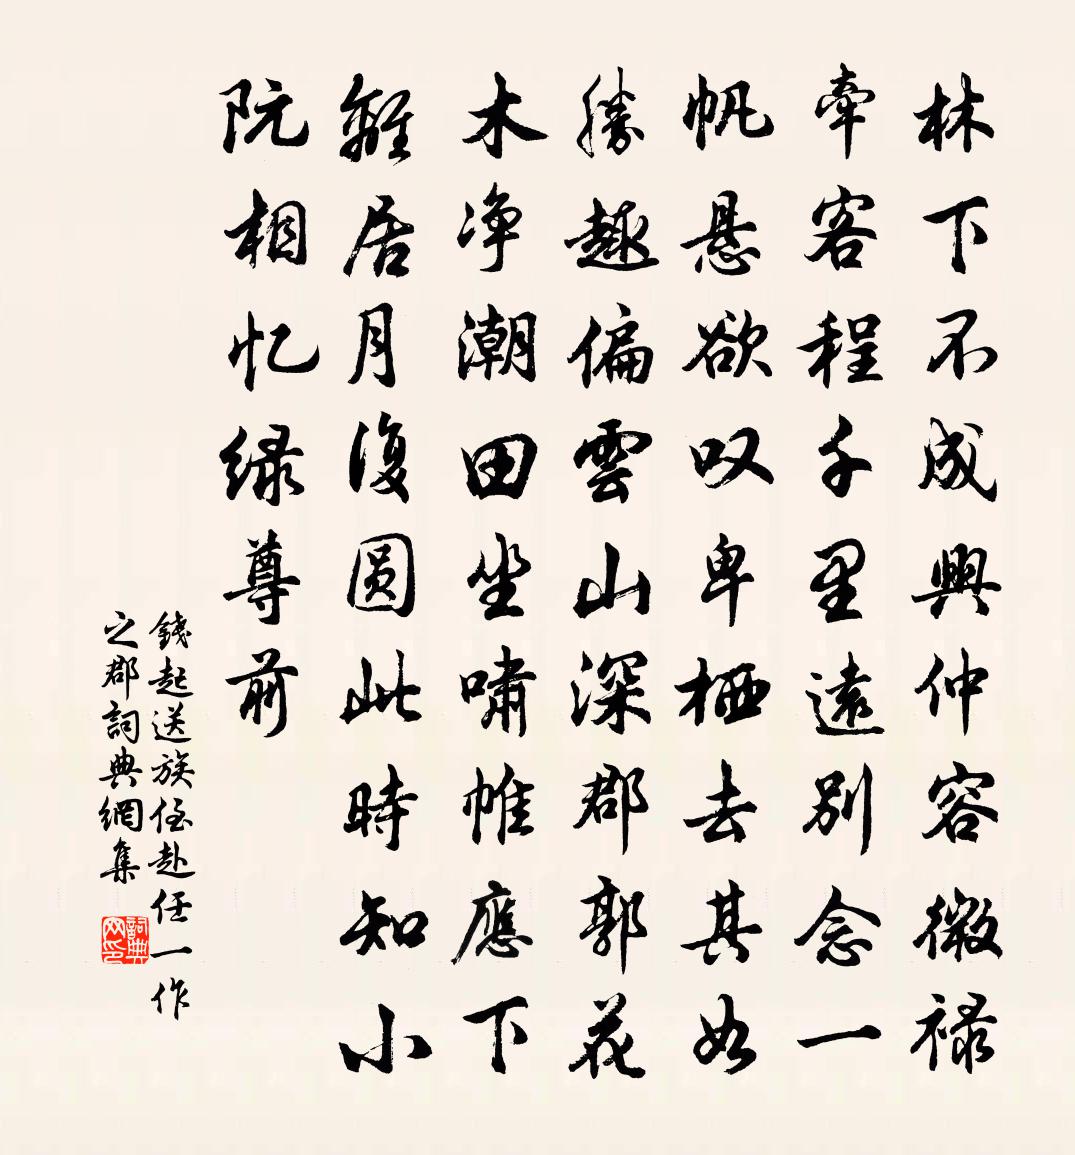 林下不成興仲容微祿
牽客程千里遠别念一
帆悬欲叹卑栖去其如
勝趣偏雲山深郡郭花
木净潮田坐嘯帷應下
離居月復圆此時知小
阮相忆绿尊前
錢起送族侄赴任一作
之郡詞典網集
詞典网印